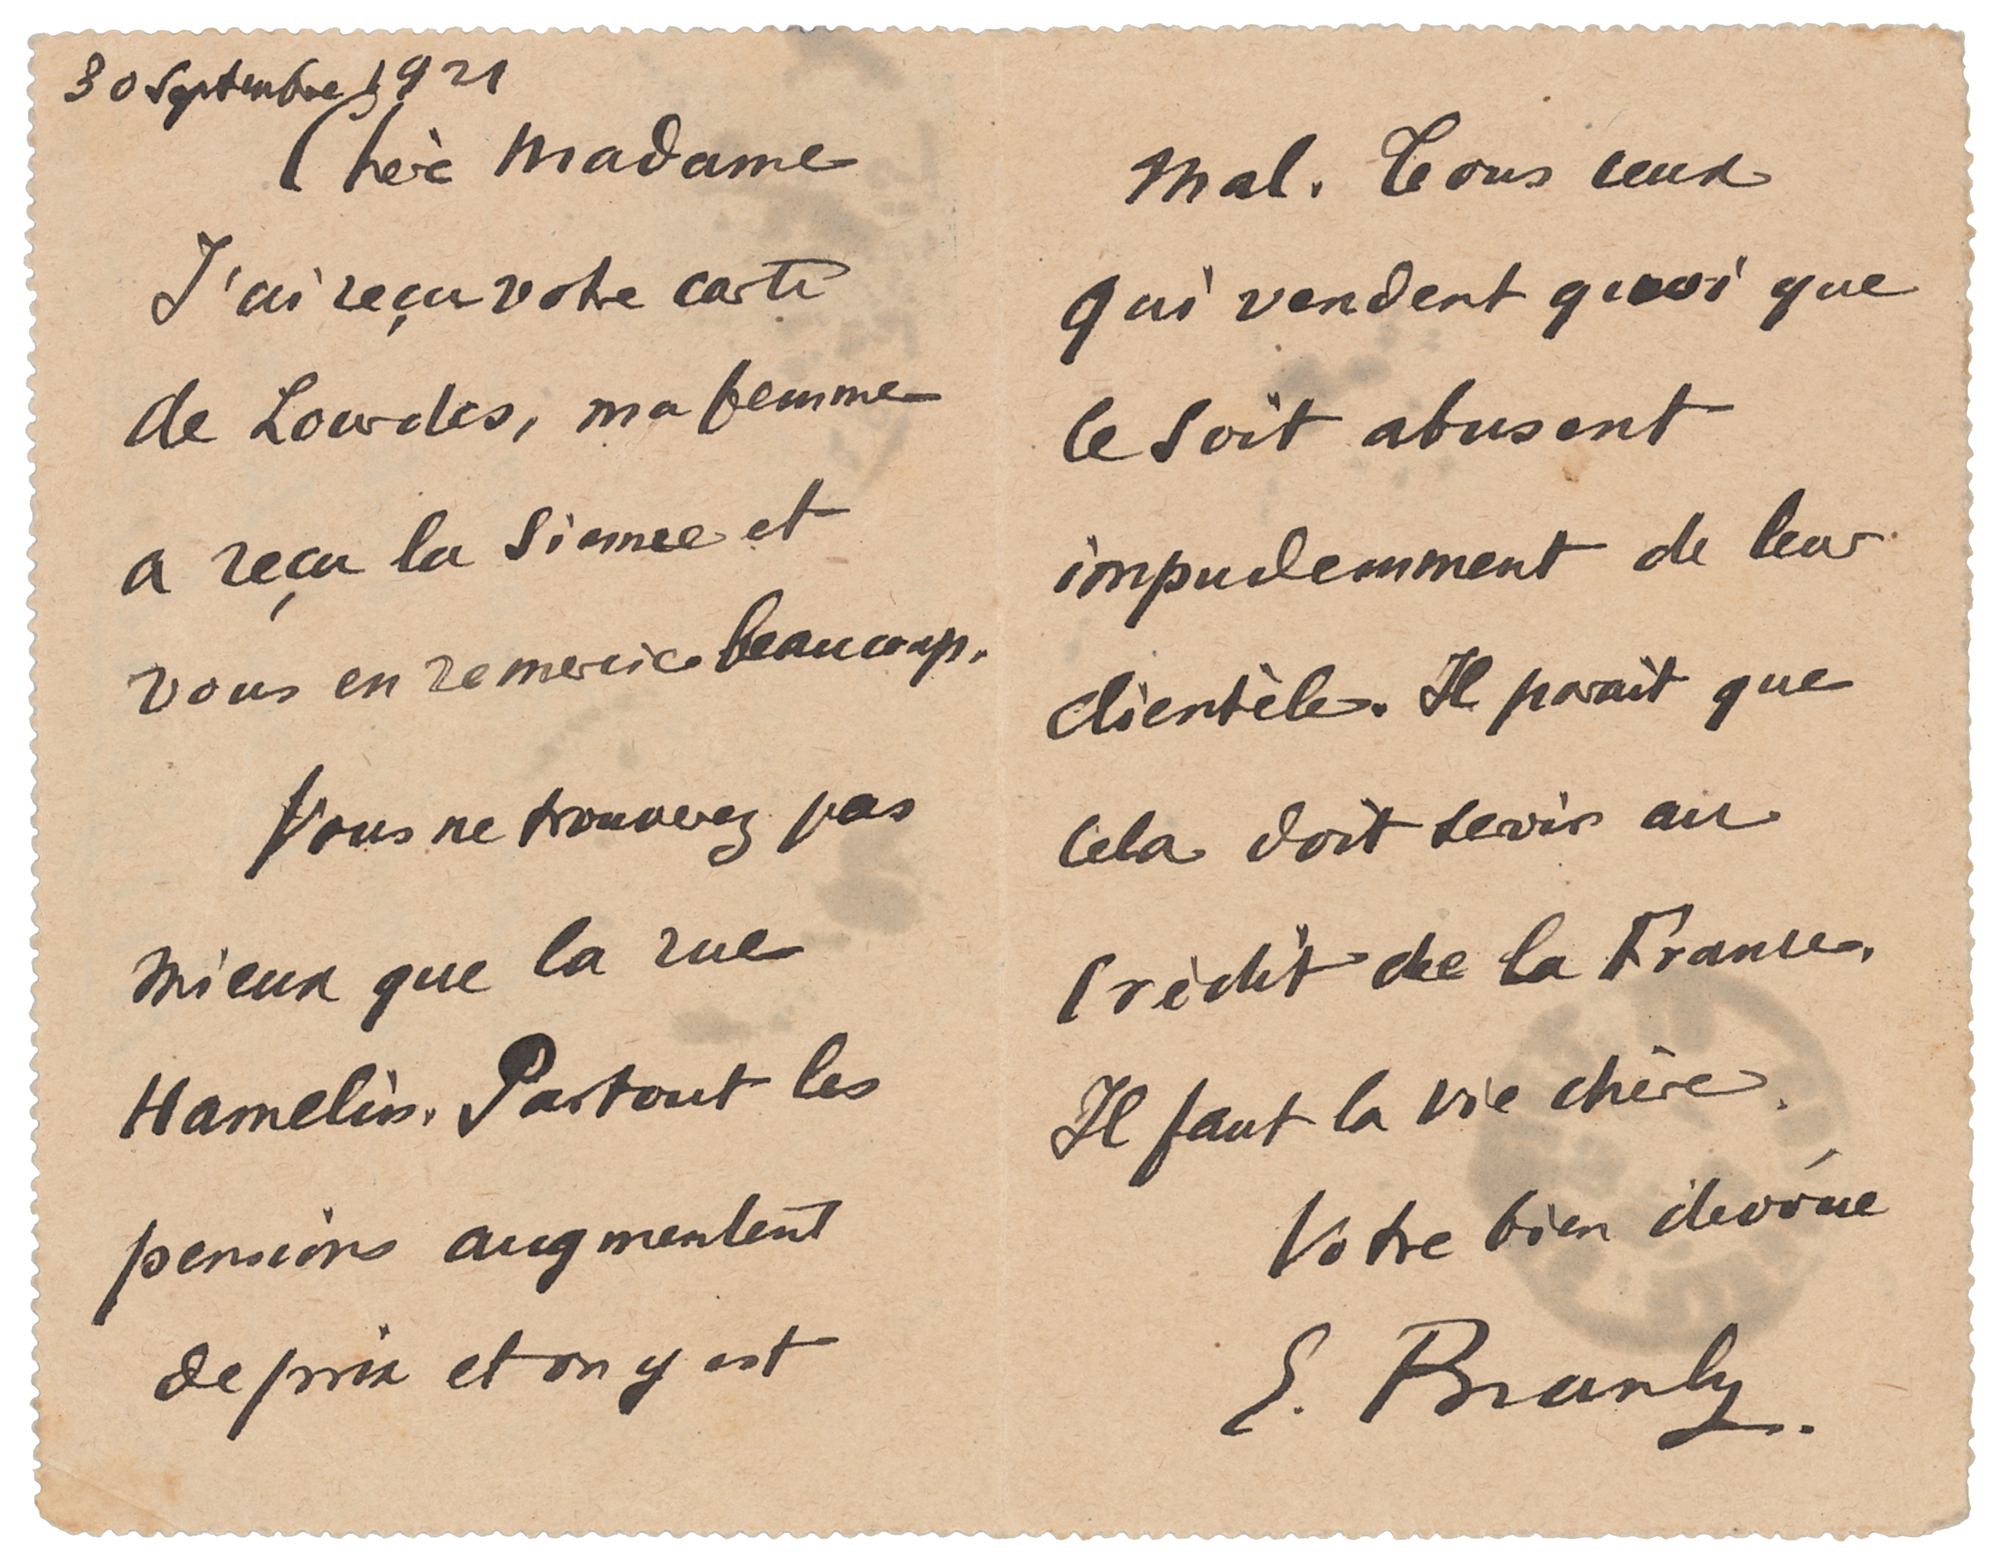 30 Septembre 1921
Chère Madame
J'ai reçu votre carte
de Lourdes, ma femme
a reçu la sienne et
vous en remercie beaucoup.
Vous ne trouverez pas
mieux que la rue
Hamelin. Partout les
pensions augmentent
de prix et on y est
mal. Tous ceux
qui vendent quoi que
ce soit abusent
impudemment de leur
clientèle. Il parait que
cela doit servir au
crédit de la France.
Il faut la vie chère.
Votre bien dévoué
E. Branly.